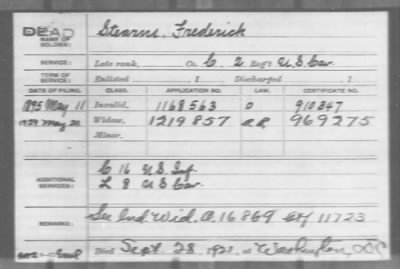 DEAD
NAME OF SOLDIER: Stearns, Frederick
SERVICE: Late rank, Co. C, 2 Reg't U.S. Cav.
TERM OF SERVICE: Enlisted , 1 Discharged , 1
DATE OF FILING. CLASS. APPLICATION NO. LAW. CERTIFICATE NO.
1895 May 11 Invalid, 1168563 910347
May 20 Widow, 1219857 969275
Minor,
ADDITIONAL SERVICES: C 16 U.S. Inf.
L 8 U.S Cav.
REMARKS: See Ind. Wid. O. 16869 11723
Died Sept. 28, 1921, at Washington, D.C.